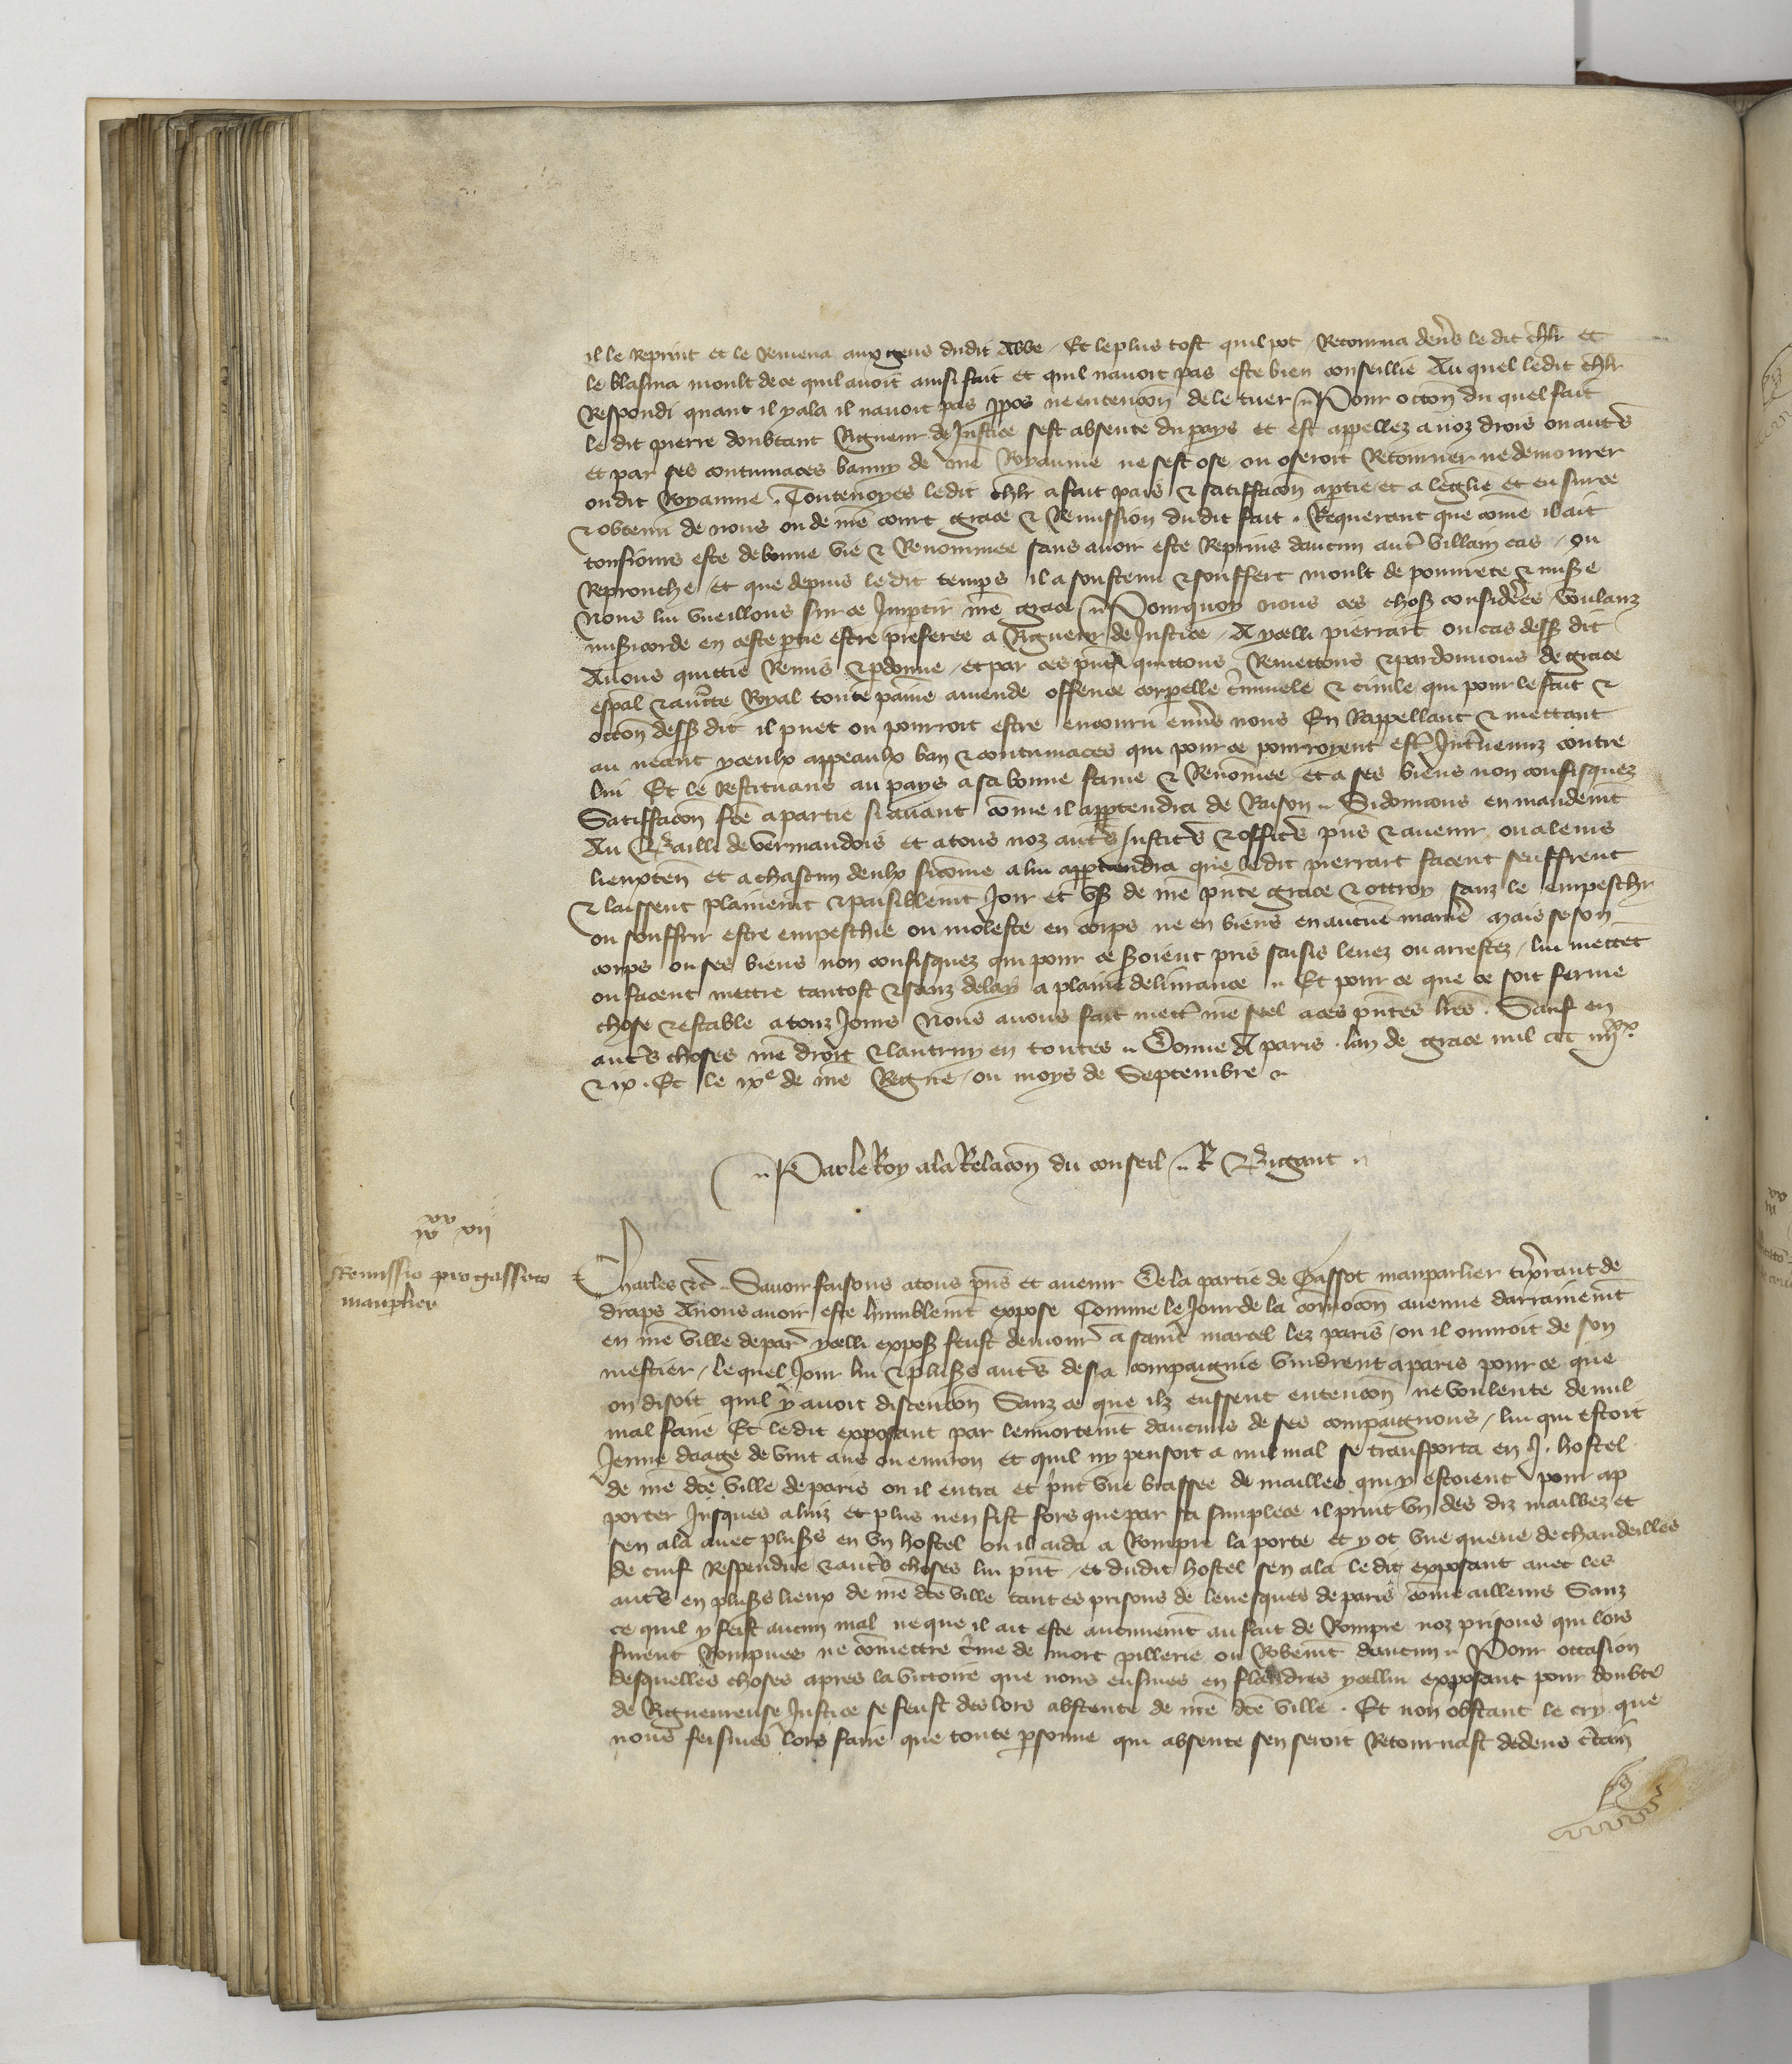 il le reprint et le remena aux gens dudit Abbe / Et le plus tost quil pot / Retourna deũs le dit chlr et
le blasma moult de ce quil auoit ainsi fait et quil nauoit pas este bien conseillie Au quel ledit chlr
Respondi quant il y ala il nauoit pas ꝓpos ne entencõn de le tuer Pour occõn du quel fait
le dit pierre doubtant Rigueur de Justice sest absente du pays et est appellez a noz drois ou autˢ
et par ses contumaces banny de nr̃e Royaume ne sest ose ou oseroit Retourner ne demourer
ou dit Royaume . Touteuoyes ledit chlr a fait pais ⁊ satiffacõn a ꝑtie et a leglise et en sur ce
⁊ obtenu de nous ou de nr̃e court grace ⁊ Remission du dit fait . Requerant que cõme il ait
tousiours este de bonne vie ⁊ Renommee sans auoir este Reprins daucun autˢ villain cas / ou
Reprouche / Et que depuis le dit temps il a soustenu ⁊ souffert moult de pourete ⁊ miß̃e
Nous lui vueillons sur ce Impartir nr̃e grace Pourquoy nous ces choß consid̃ees voulanz
miß̃icorde en ceste ꝑtie estre preferee a Rigueur de Justice / A ycelli pierrart ou cas desß dit
Auons quittie Remis ⁊ ꝑdonne / et par ces pñt̃ quittons Remettons ⁊ pardonnons de grace
esp̃al ⁊ auc̃te Royal toute paine amende offence corpelle c̃minele ⁊ ciuile qui pour le fait ⁊
occõn desß dit il puet ou pourroit estre encouru enũs nous En Rappellant ⁊ mettant
au neant yceulx appeaulx ban ⁊ contumaces qui pour ce pourroyent estˢ Jnt̃uenuz contre
lui Et le restituans au pays a sa bonne fame ⁊ Renõmee et a ses biens non confisquez
Satiffacõn fc̃e a partie si auant cõme il appartendra de Raison . Si donnons en mandem̃t
Au Bailli de vermandois et a tous noz autˢ Justicˢ ⁊ officˢ pñs ⁊ auenir ou a leurs
lieuxteñ et a chascun deulx si cõme a lui appartendra que le dit pierrart facent seuffrent
⁊ laissent plainem̃t ⁊ paisiblem̃t Joir et vß de nr̃e pñte grace ⁊ ottroy sanz le empeschr
ou souffrir estre empeschie ou moleste en corps ne en biens en aucune manie᷑ mais se son
corps ou ses biens non confisquez qui pour ce ß̃oient pris saisis leuez ou arrestez / lui mettet
ou facent mettre tantost ⁊ sanz delay a plaine deliurance . Et pour ce que ce soit ferme
chose ⁊ estable a touz Jours Nous auons fait mettˢ nr̃e seel a ces pñtes lr̃es . Sauf en
autˢ choses nr̃e droit ⁊ lautruy en toutes . Donne A paris . lan de grace mil ccc iiijxx.
⁊ ix . Et le ixe de nr̃e Regne / ou moys de Septembre
Par le Roy a la Relacõn du conseil . R Bigant
iiijxx xvij
Remissio pro gassoto
manplier
Charles ⁊c̃ . Sauoir faisons a tous pñs et auenir De la partie de Gassot manparlier tix̃erant de
draps Auons auoir este humblem̃t expose Comme le Jour de la cõmocõn auenue darrainem̃t
en nr̃e ville de par̃ ycelli exposß feust demour᷑ a saint marcel lez paris / ou il ouuroit de son
mestier / le quel Jour lui ⁊ plußs autˢ de sa compaignie vindrent a paris pour ce que
on disoit quil y auoit discencõn Sanz ce que ilz eussent entencõn ne voulente de nul
mal faire Et le dit exposant par lenortem̃t daucuns de ses compaignons / lui qui estoit
Jenne daage de vint ans ou enuiron et quil ny pensoit a nul mal se transporta en .J. hostel
de nr̃e dc̃e ville de paris ou il entra et print vne brassee de mailles qui y estoient pour ap
porter Jusques a huiz et plus nen fist fors que par sa simplece il print vn des diz maillez et
sen ala auec plußs en vn hostel ou il aida a Rompre la porte et y ot vne queue de chandeilles
de cuif Respendue ⁊ autˢ choses lui pñt / et dudit hostel sen ala le dit exposant auec les
autˢ en plußs lieux de nr̃e dc̃e ville tant es prisons de leuesques de paris cõme ailleurs Sanz
ce quil y feist aucun mal ne que il ait este aucunem̃t au fait de Rompre noz prisons qui lors
furent Rompues ne cõmettre c̃me de mort pillerie ou Robem̃t daucun . Pour occasion
desquelles choses apres la victoire que nous eusmes en flandres ycellui exposant pour doubte
de Rigueureuse Justice se feust des lors absente de nr̃e dc̃e ville . Et non obstant le cry que
nous feismes lors faire que toute ꝑsonne qui absente sen seroit Retournast dedens c̃tain